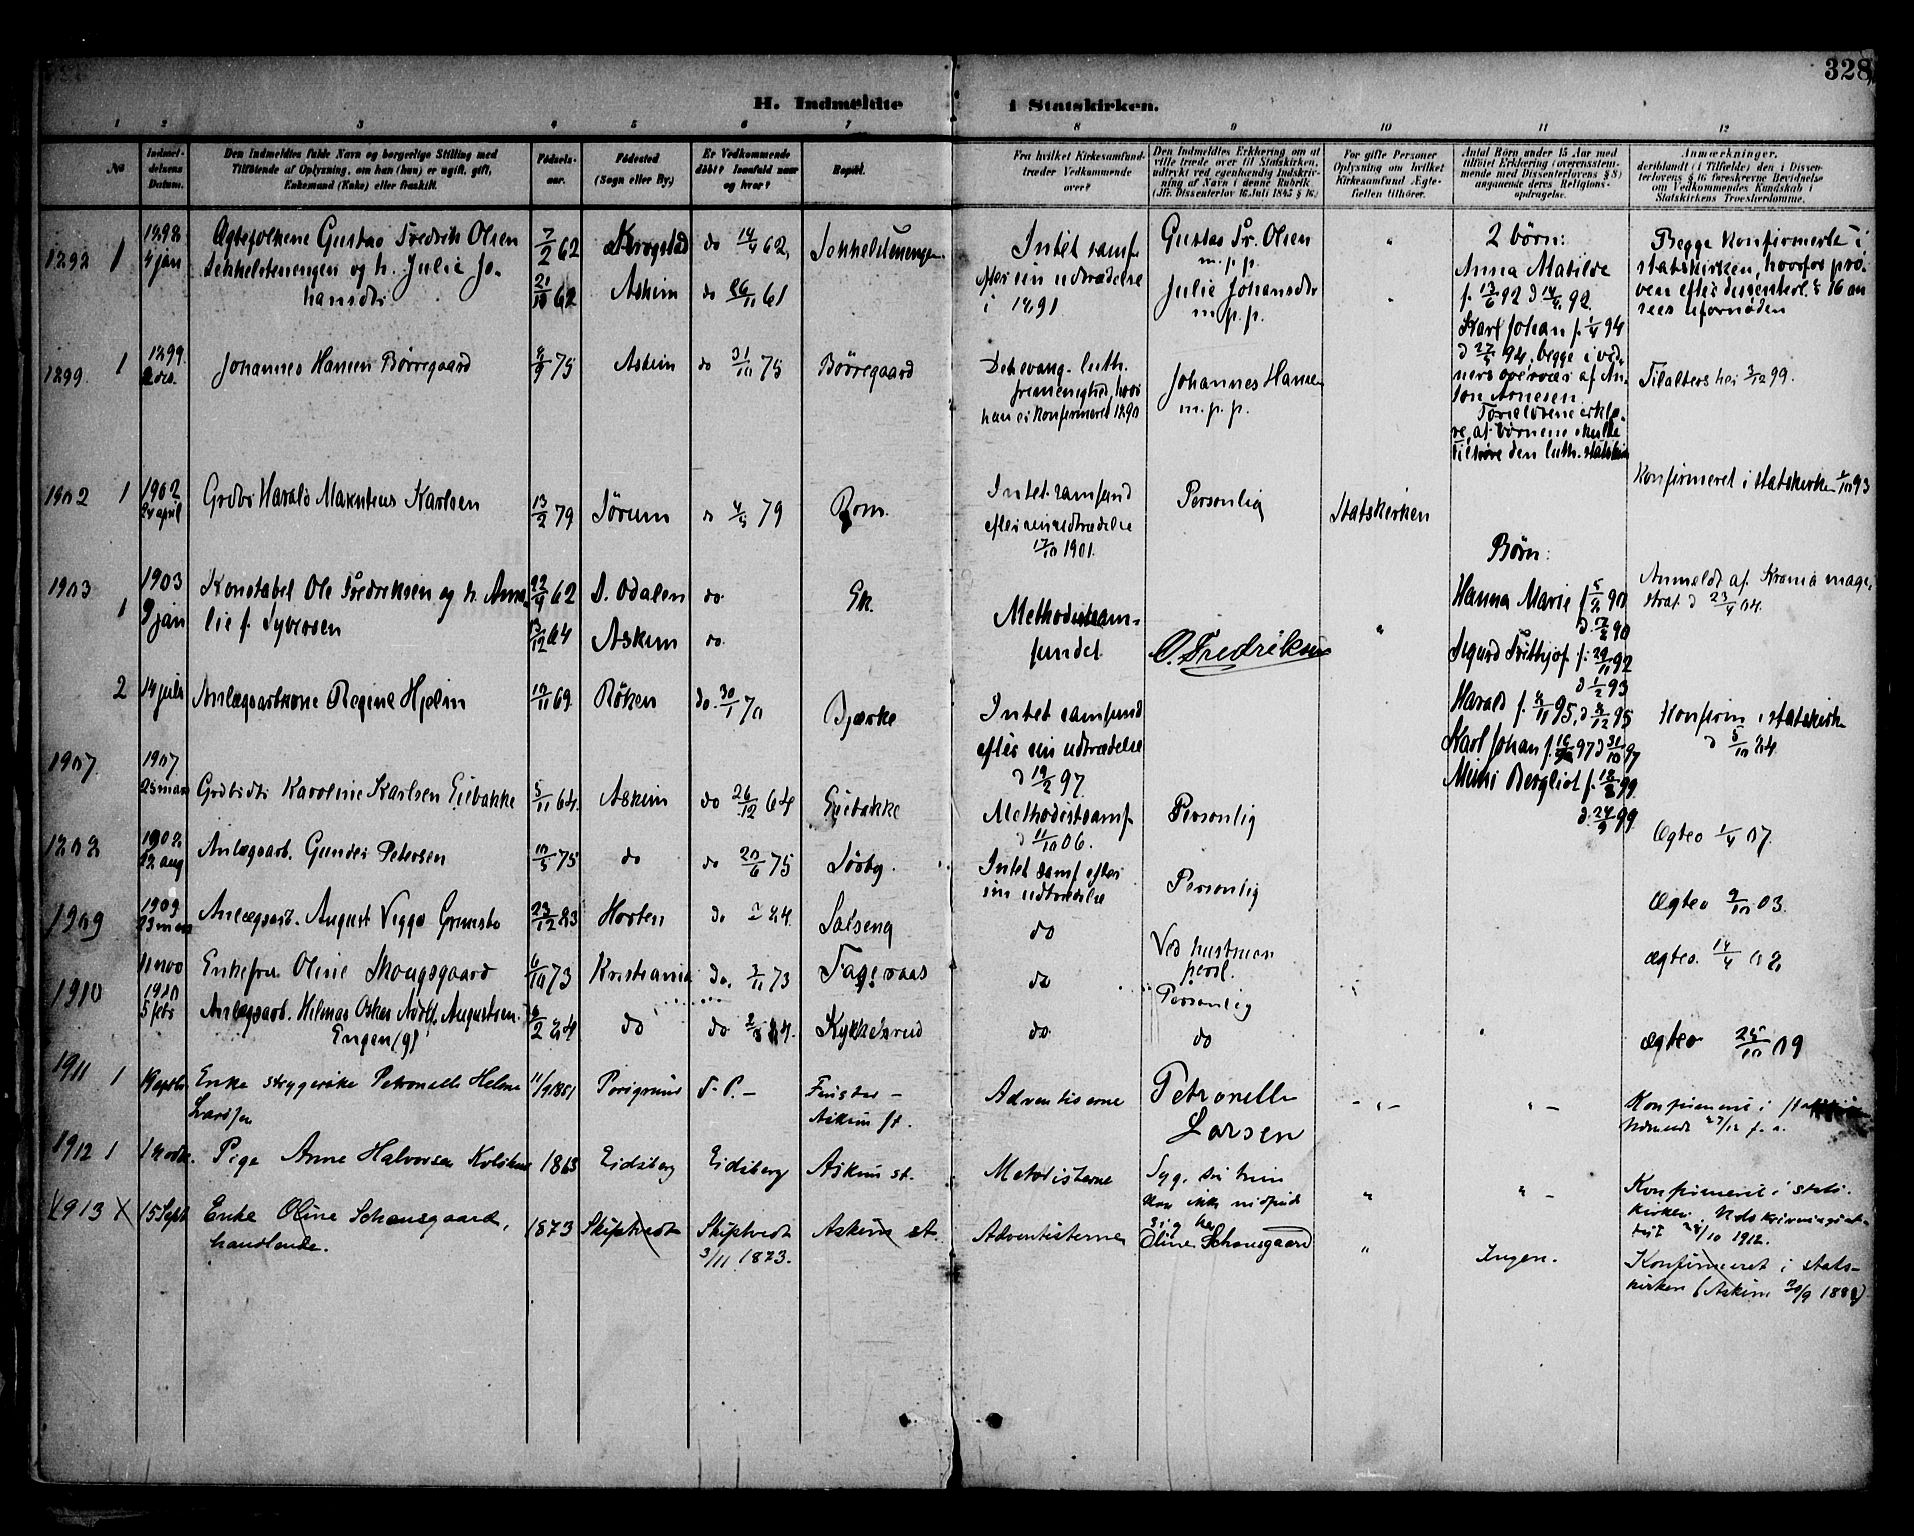 328
H. Indmeldte i Statskirken.
1 2 3 4 5 6 7 8 9 10 11 12
No
Indmel-
delsens
Datum.
Den Indmeldtes fulde Navn og borgerlige Stilling med
Tilføiende af Oplysning, om han (hun) er ugift, gift,
Enkemand (Enke) eller fraskilt.
Fødsels-
aar.
Fødested
(Sogn eller By.)
Er Vedkommende
døbt? Isaafald naar
og hvor?
Bopæl.
Fra hvilket Kirkesamfund
træder Vedkommende
over?
Den Indmeldtes Erklæring om at
ville træde over til Statskirken,
udtrykt ved egenhændig Indskriv-
ning af Navn i denne Rubrik
(Jfr. Dissenterlov 16 Juli 1845 § 16.)
For gifte Personer
Oplysning om hvilket
Kirkesamfund Ægte-
fællen tilhører.
Antal Børn under 15 Aar med
tilføiet Erklæring (overensstem-
mende med Dissenterlovens § 8)
angaaende deres Religions-
opdragelse.
Anmærkninger,
deriblandt (i Tilfælde) den i Dissen-
terlovens § 16 foreskrevne Bevidnelse
om Vedkommendes Kundskab i
Statskirkens Troeslærdomme.
1898 1 1898
4 jan
Ægtefolkene Gustav Fredrik Olsen
Jokkelstenengen og h. Julie Jo-
hansdtr
7/2 62
Krogstad
do 14/4 62
Jokkelstenengen
21/10 62
Askim
do 26/11 61
Intet samf
efter sin udtrædelse
i 1891
Gustav Fr. Olsen
m. p. p.
Julie Johansdtr
m. p. p.
2 børn:
Anna Matilde
f. 13/6 92 d 14/8 92
Karl Johan f. 1/4 94
d 27/5 94, begge i vid-
ners overvær af An-
ton Arnesen
Forældrene erklæ-
re, at børnene skulle
tilhøre den luth. statskirke
Begge konfirmerte i
statskirken, hvorfor prø-
ven efter dissenterl. § 16 an
sees ufornøden
1899 1 1899
2 dec.
Johannes Hansen Børregaard
8/9 75
Askim
do 31/10 75
Børregaard
Det evang. luth.
frimenighed, hvor
han er konfirmeret 1890
Johannes Hansen
m. p. p.
Tilalters her 3/12 99.
1902 1 1902
24 april
Grdbr Harald Maxentius Karlsen
13/2 79
Sørum
do 4/5 79
Rom.
Intet samfund
efter sin udtrædelse
17/10 1901.
Personlig
Statskirken
Konfirmeret i statskirken 1/10 93
1903 1 1903
9 jan
Konstabel Ole Fredriksen og h. Ama-
lie f. Syversen
22/9 62
S. Odalen
do.
Ek.
13/12 64
Askim
do.
Methodistsam-
fundet
O. Fredriksen
Børn:
Hanna Marie f 5/2 90
d. 7/2 90
Sigurd Frithjof f. 29/11 92
d 1/2 93
Harald f. 4/11 95, d 8/12 95
Karl Johan f. 16/ 97 d 31/10 97
Meini Bergliot f. 18/8 99
d. 24/9 99
Anmeldt af Krania magi-
strat d 23/4 04.
2 14 juli
Anlægsarbkone Regine Hjelm
10/11 69
Røken
do. 30/1 70
Bjærke
Intet samfund
efter sin udtrædelse
d 19/2 97.
Konfirm i statskirk
d 5/10 84.
1907 1907
25 mars
Grdbrdtr Karoline Karlsen Eiebakke
5/11 64.
Askim
do 26/12 64
Eiebakke
Methodistsamf
d 11/10 06.
Personlig
Ægtev 1/4 07.
1908 1908
22 aug
Anlægsarb. Gunder Petersen
10/5 75
do
do 20/6 75
Løvby.
Intet samf efter
sin udtrædelse
Personlig
Ægtev 9/10 03.
1909 1909
23 mars
Anlægsarb. August Viggo Grimsbo
23/12 83
Horten
do 84
Salseng
do
Ved hustruen
persl.
ægtev. 14/4 02.
11 nov
Enkefru Oline Skougsgaard
6/10 73
Kristiania
do. 3/11 73
Fageraas
do
Personlig
1910 1910
5 febr
Anlægsarb. Hilmar Oskar Adolf Augustsen
Engen (g)
/2 84
do
do 84.
Kykkelsrud
do
do
ægtev 25/10 09
1911 1 19 septbr
Enke strygerske Petronelle Helene
Larsen
11/9 1851
Porsgrund
s. P. –
Askim st.
Adventisterne
Petronelle
Larsen
Konfirmeret i
Udmeldt 27/12 f. a.
1912 1
Pige Anne Halvorsen
1863
Eidsberg
Eidsberg
Askim st.
Metodisterne
Syg, saa hun
kan ikke
sig her
Konfirmeret i stats-
kirken. Udskrivningsat-
test 24/10 1912.
1913 X 15 Sept
Enke Oline Schousgaard,
handlende.
1873
Skiptvedt
Skiptvedt
3/11 1873.
Askim st.
Adventisterne
Oline Schousgaard
Ingen.
Konfirmeret i stats-
kirken (Askim 30/9 1888)